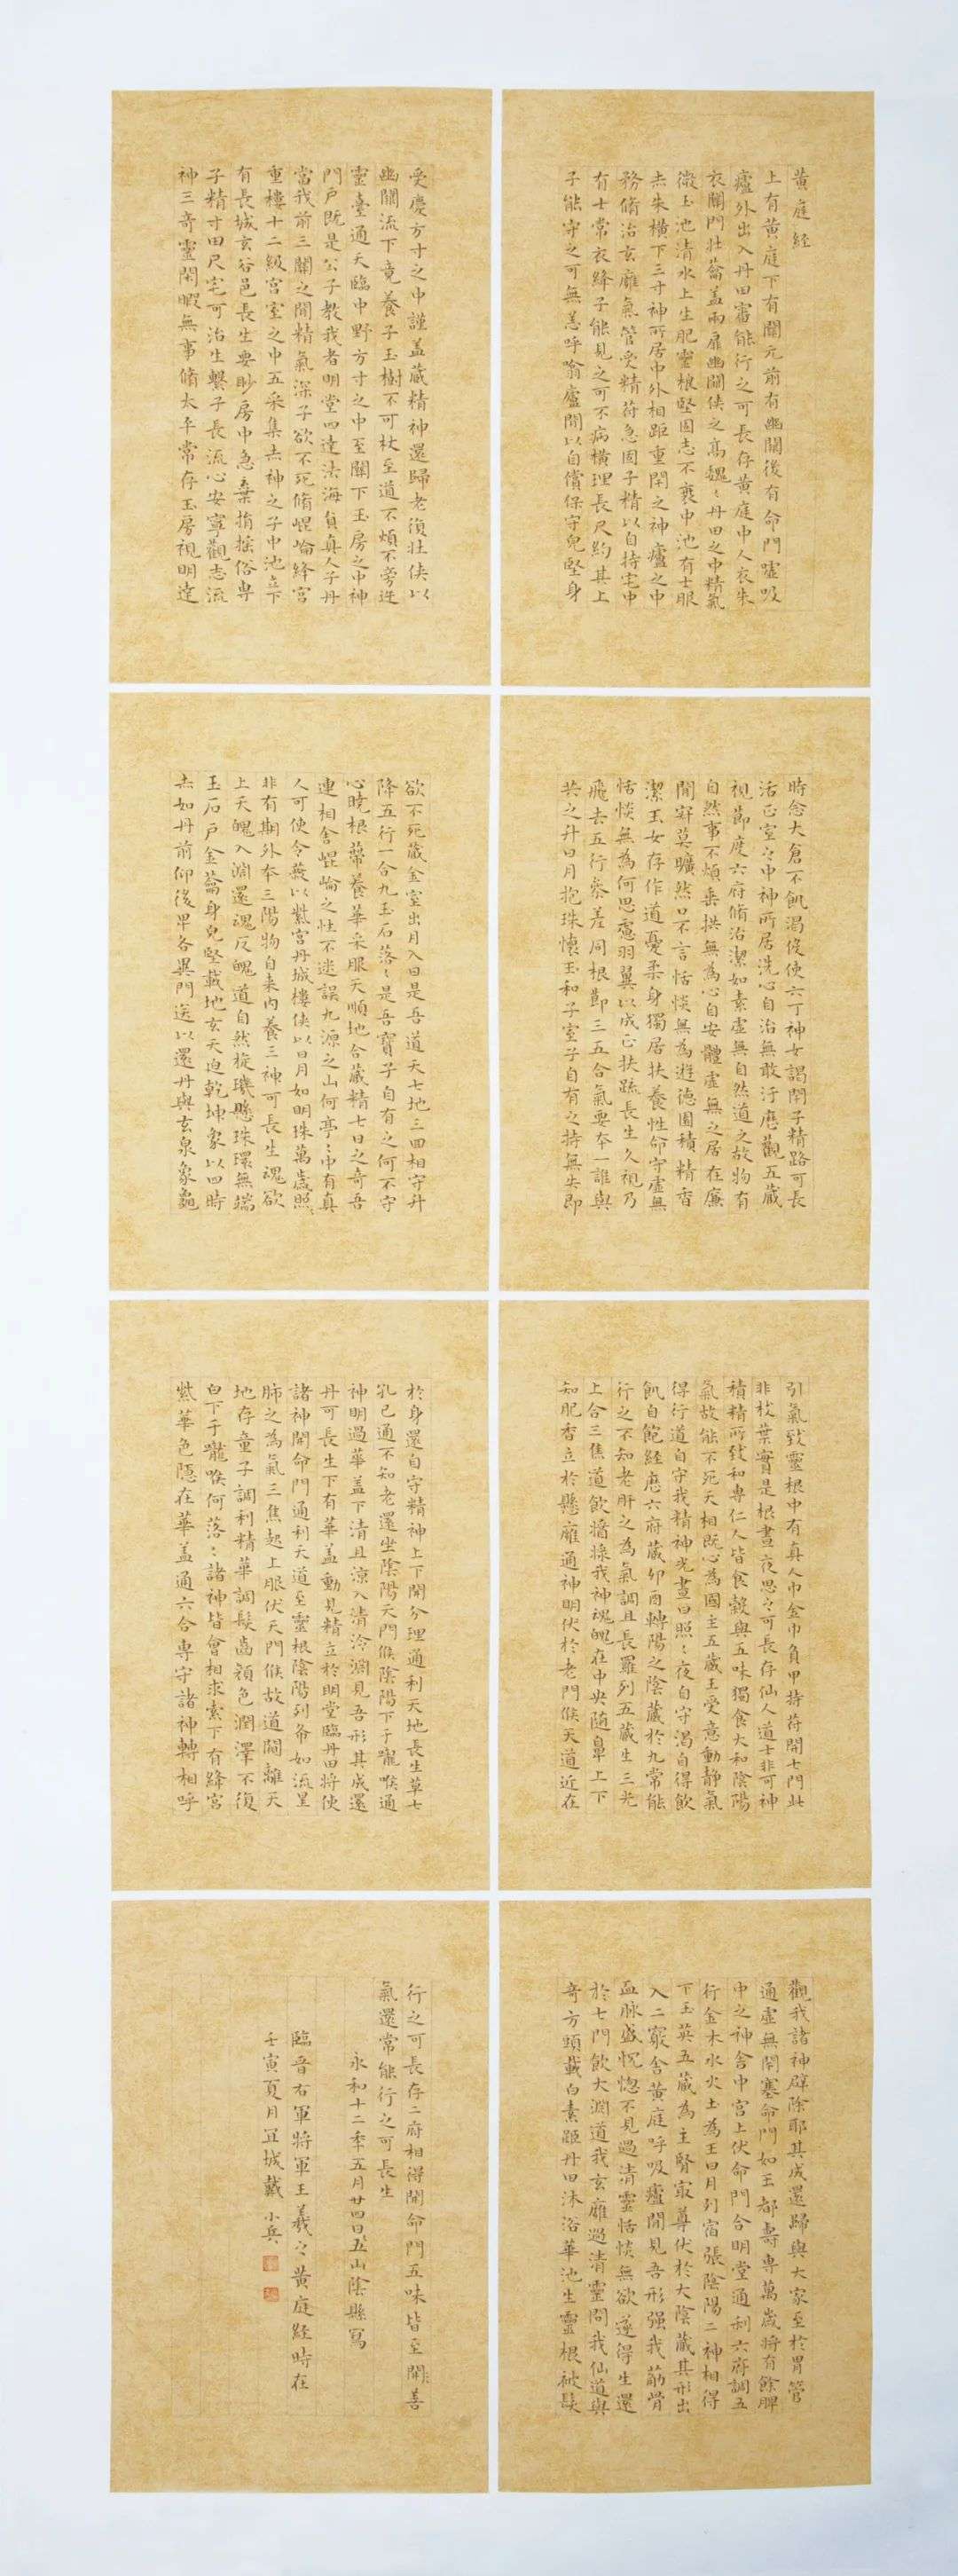 黃庭經
上有黃庭下有關元前有幽關後有命門噓吸
廬外出入丹田審能行之可長存黃庭中人衣朱
衣關門壯蘥蓋兩扉幽關俠之高魏〻丹田之中精氣
微玉池清水上生肥靈根堅固志不衰中池有士服
赤朱橫下三寸神所居中外相距重閉之神廬之中
務脩治玄廱氣管受精苻急固子精以自持宅中
有士常衣絳子能見之可不病橫理長尺約其上
子能守之可無恙呼噏廬間以自償保守皃堅身
受慶方寸之中謹蓋藏精神還歸老復壯俠以
幽關流下竟養子玉樹不可杖至道不煩不旁迕
靈臺通天臨中野方寸之中至關下玉房之中神
門戶既是公子教我者明堂四達法海員真人子丹
當我前三關之間精氣深子欲不死脩崐崘絳宮
重樓十二級宮室之中五采集赤神之子中池立下
有長城玄谷邑長生要眇房中急棄捐搖俗專
子精寸田尺宅可治生繫子長流心安寧觀志流
神三奇靈閑暇無事脩太平常存玉房視明達
時念大倉不飢渴伇使六丁神女謁閉子精路可長
活正室之中神所居洗心自治無敢汙歷觀五藏
視節度六府脩治潔如素虛無自然道之故物有
自然事不煩垂拱無為心自安體虛無之居在廉
間寂莫曠然口不言恬惔無為遊德園積精香
潔玉女存作道憂柔身獨居扶養性命守虛無
恬惔無為何思慮羽翼以成正扶疏長生久視乃
飛去五行參差同根節三五合氣要本一誰與
共之升日月抱珠懷玉和子室子自有之持無失即
欲不死藏金室出月入日是吾道天七地三回相守升
降五行一合九玉石落〻是吾寶子自有之何不守
心曉根蒂養華采服天順地合藏精七日之奇吾
連相舍崐崘之性不迷誤九源之山何亭〻中有真
人可使令蔽以紫宮丹城樓俠以日月如明珠萬歲照〻
非有期外本三陽物自來內養三神可長生魂欲
上天魄入淵還魂反魄道自然旋璣懸珠環無端
玉石戶金蘥身皃堅載地玄天迫乾坤象以四時
赤如丹前仰後卑各異門送以還丹與玄泉象龜
引氣致靈根中有真人巾金巾負甲持苻開七門此
非枝葉實是根晝夜思之可長存仙人道士非可神
積精所致和專仁人皆食穀與五味獨食大和陰陽
氣故能不死天相既心為國主五藏王受意動靜氣
得行道自守我精神光晝日照〻夜自守渴自得飲
飢自飽經歷六府藏卯酉轉陽之陰藏於九常能
行之不知老肝之為氣調且長羅列五藏生三光
上合三焦道飲牆採我神魂魄在中央隨鼻上下
知肥香立於懸廱通神明伏於老門候天道近在
於身還自守精神上下開分理通利天地長生草七
孔已通不知老還坐陰陽天門候陰陽下于嚨喉通
神明過華蓋下清且涼入清泠淵見吾形其成還
丹可長生下有華蓋動見精立於明堂臨丹田將使
諸神開命門通利天道至靈根陰陽列布如流星
肺之為氣三焦起上服伏天門候故道闚離天
地存童子調利精華調髮齒顏色潤澤不復
白下于嚨喉何落〻諸神皆會相求索下有絳宮
紫華色隱在華蓋通六合專守諸神轉相呼
觀我諸神辟除耶其成還歸與大家至於胃管
通虛無閉塞命門如玉都壽專萬歲將有餘脾
中之神舍中宮上伏命門合明堂通利六府調五
行金木水火土為王日月列宿張陰陽二神相得
下玉英五藏為主腎寂尊伏於大陰藏其形出
入二竅舍黃庭呼吸廬間見吾形强我筋骨
血脉盛怳惚不見過清靈恬惔無欲遂得生還
於七門飲大淵道我玄廱過清靈問我仙道與
奇方頭載白素距丹田沐浴華池生靈根被髮
行之可長存二府相得開命門五味皆至開善
氣還常能行之可長生
永和十二年五月廿四日五山陰縣寫
臨晉右軍將軍王羲之黃庭經時在
壬寅夏月 城戴小兵